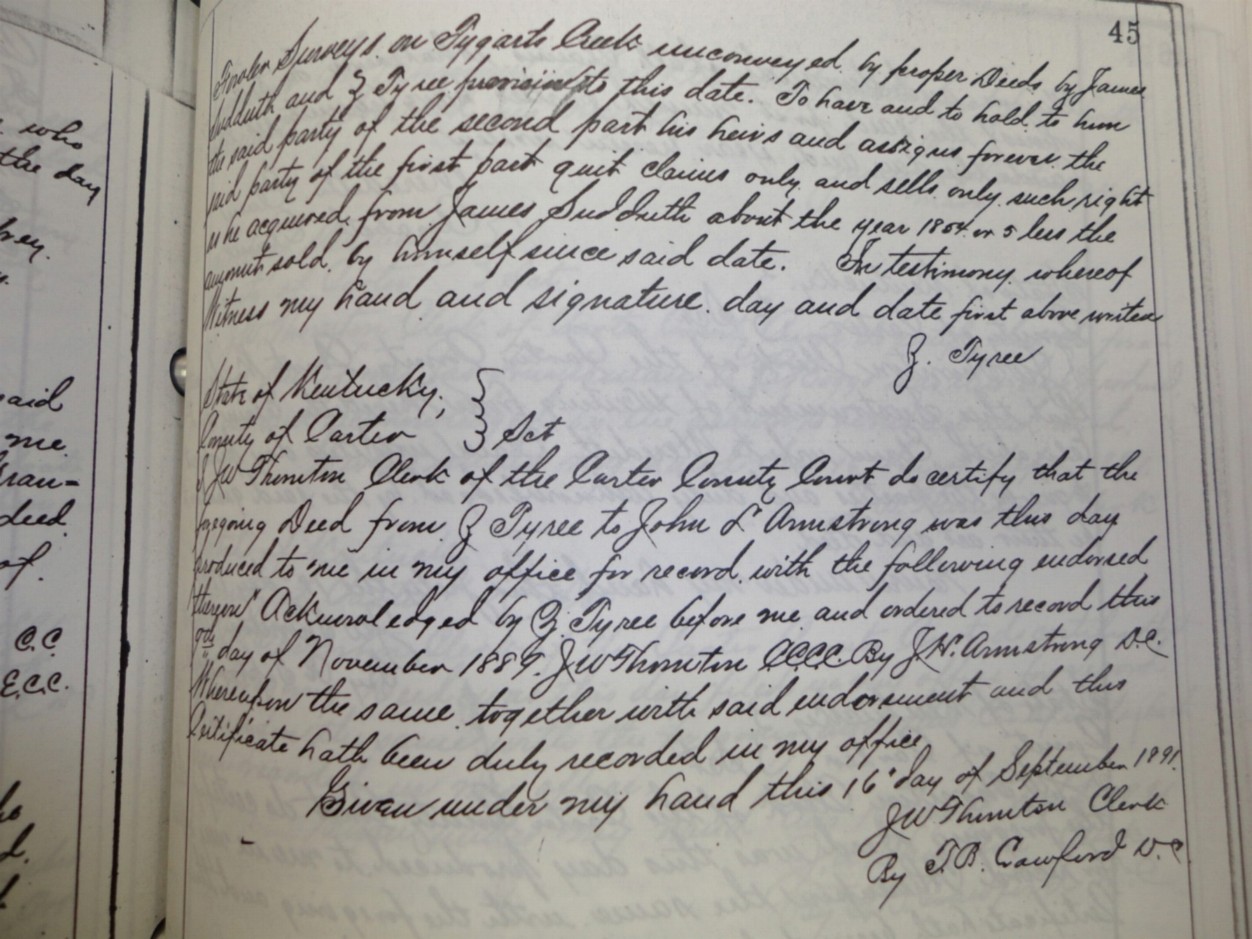 45
Surveys on Tygarts Creek unconveyed by proper Deeds by James
Sudduth and Z Tyree previous to this date. To have and to hold to him
the said party of the second part his heirs and assigns forever. the
said party of the first part quit claims only and sells only such right
as he acquired from James Sudduth about the year 1854 or 5 less the
amount sold by himself since said date. In testimony whereof
Witness my hand and signature day and date first above written
Z. Tyree
State of Kentucky,
County of Carter } Sct
I JW Thornton Clerk of the Carter County Court do certify that the
foregoing Deed from Z Tyree to John L Armstrong was this day
produced to me in my office for record with the following endorsed
thereon "Acknowledged by Z Tyree before me and ordered to record this
day of November 1889. JW Thornton C.C.C.C. By J.H. Armstrong D.C.
Whereupon the same together with said endorsement and this
Certificate hath been duly recorded in my office
Given under my hand this 16" day of September 1891
JW Thornton Clerk
By T.B. Crawford D.C
who
the day
said
me.
Gran=
deed
of.
C.C.
E.C.C.